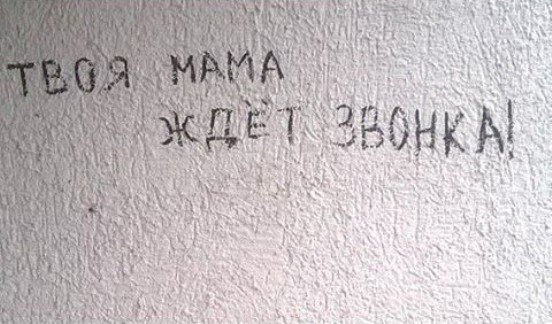 ТВОЯ МАМА
ЖДЁТ ЗВОНКА!